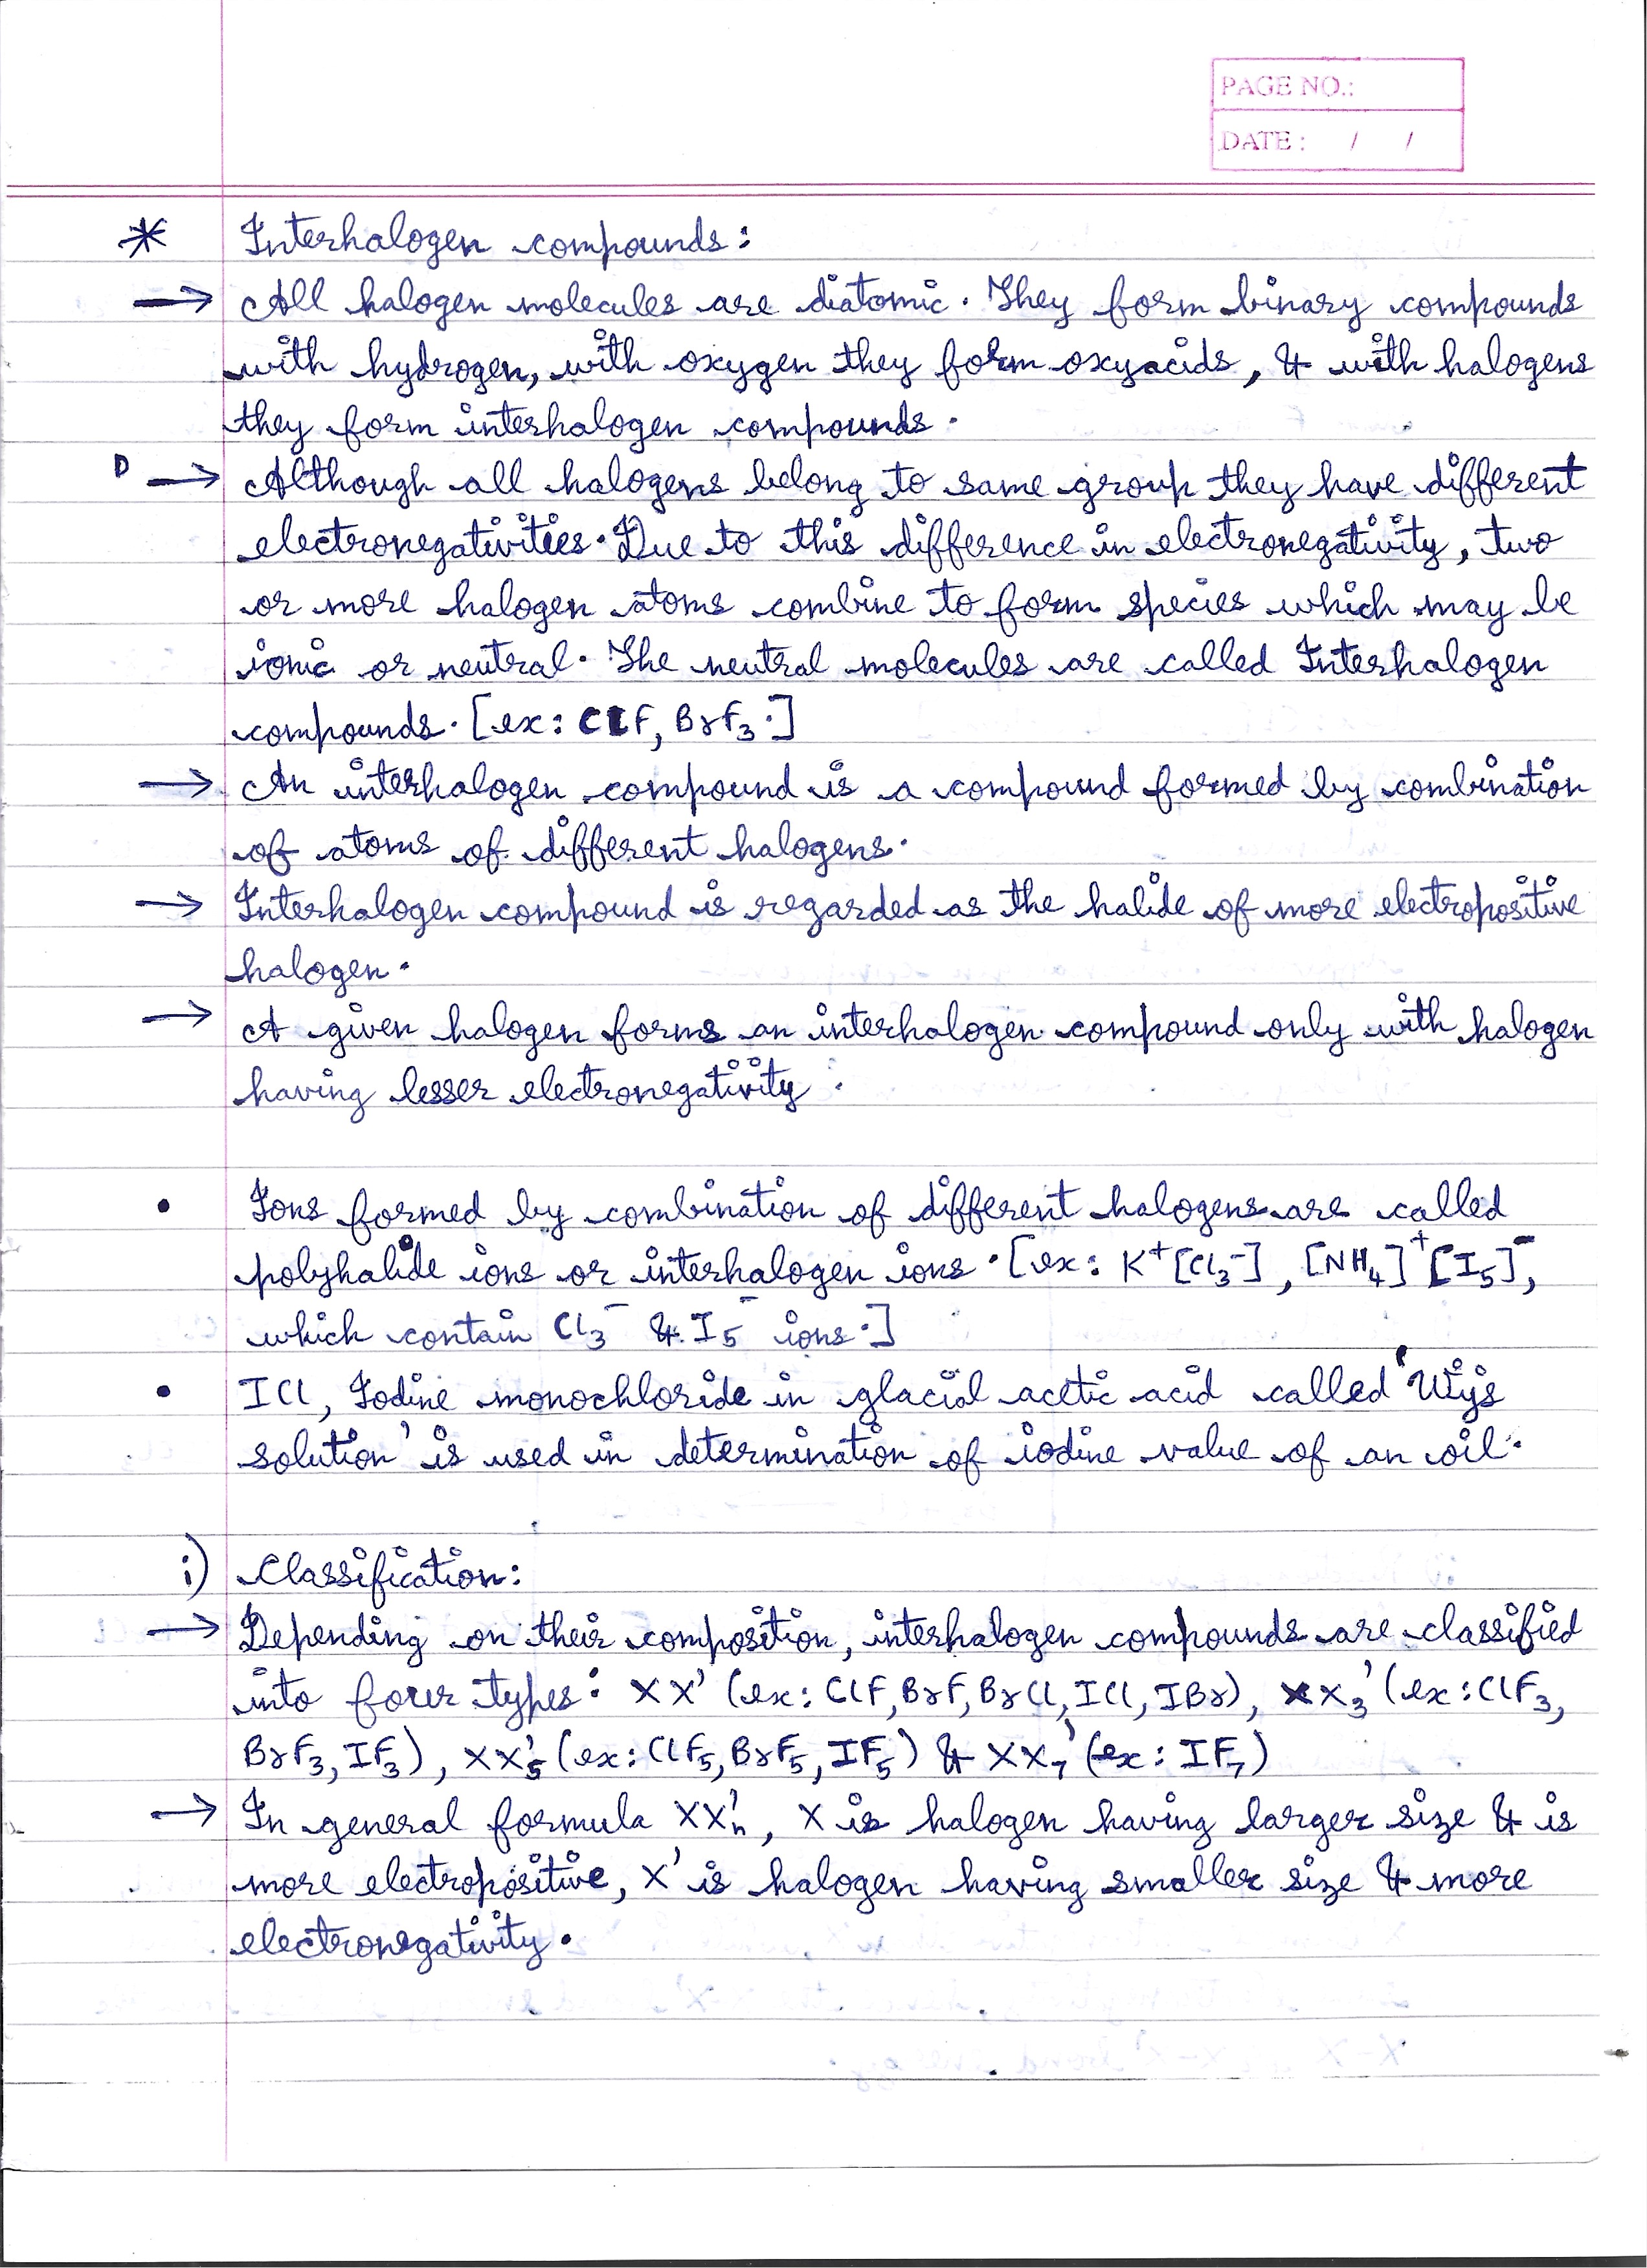 PAGE NO.:
DATE : / /
* Interhalogen compounds:
→ All halogen molecules are diatomic. They form binary compounds
with hydrogen, with oxygen they form oxyacids, & with halogens
they form interhalogen compounds.
D → Although all halogens belong to same group they have different
electronegativities. Due to this difference in electronegativity, two
or more halogen atoms combine to form species which may be
ionic or neutral. The neutral molecules are called Interhalogen
compounds. [ex: ClF, BrF₃.]
→ An interhalogen compound is a compound formed by combination
of atoms of different halogens.
→ Interhalogen compound is regarded as the halide of more electropositive
halogen.
→ A given halogen forms an interhalogen compound only with halogen
having lesser electronegativity.
• Ions formed by combination of different halogens are called
polyhalide ions or interhalogen ions. [ex: K⁺[Cl₃⁻], [NH₄]⁺[I₅]⁻,
which contain Cl₃⁻ & I₅⁻ ions.]
• ICl, Iodine monochloride in glacial acetic acid called 'Wijs
solution' is used in determination of iodine value of an oil.
i) Classification:
→ Depending on their composition, interhalogen compounds are classified
into four types: XX' (ex: ClF, BrF, BrCl, ICl, IBr), XX₃' (ex: ClF₃,
BrF₃, IF₃), XX'₅ (ex: ClF₅, BrF₅, IF₅) & XX₇' (ex: IF₇)
→ In general formula XX'ₙ, X is halogen having larger size & is
more electropositive, X' is halogen having smaller size & more
electronegativity.